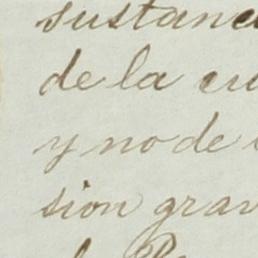 sustanc
de la cu
y no de
sion grav